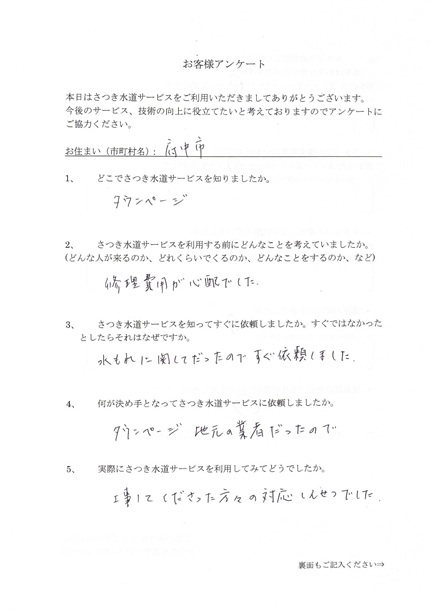 お客様アンケート
本日はさつき水道サービスをご利用いただきましてありがとうございます。
今後のサービス、技術の向上に役立てたいと考えておりますのでアンケートに
ご協力ください。
お住まい（市町村名）：府中市
1、 どこでさつき水道サービスを知りましたか。
タウンページ
2、 さつき水道サービスを利用する前にどんなことを考えていましたか。
(どんな人が来るのか、どれくらいでくるのか、どんなことをするのか、など)
修理費用が心配でした.
3、 さつき水道サービスを知ってすぐに依頼しましたか。すぐではなかった
としたらそれはなぜですか。
水もれに関してだったのですぐ依頼しました.
4、 何が決め手となってさつき水道サービスに依頼しましたか。
タウンページ 地元の業者だったので
5、 実際にさつき水道サービスを利用してみてどうでしたか。
工事してくださった方々の対応しんせつでした.
裏面もご記入ください⇒